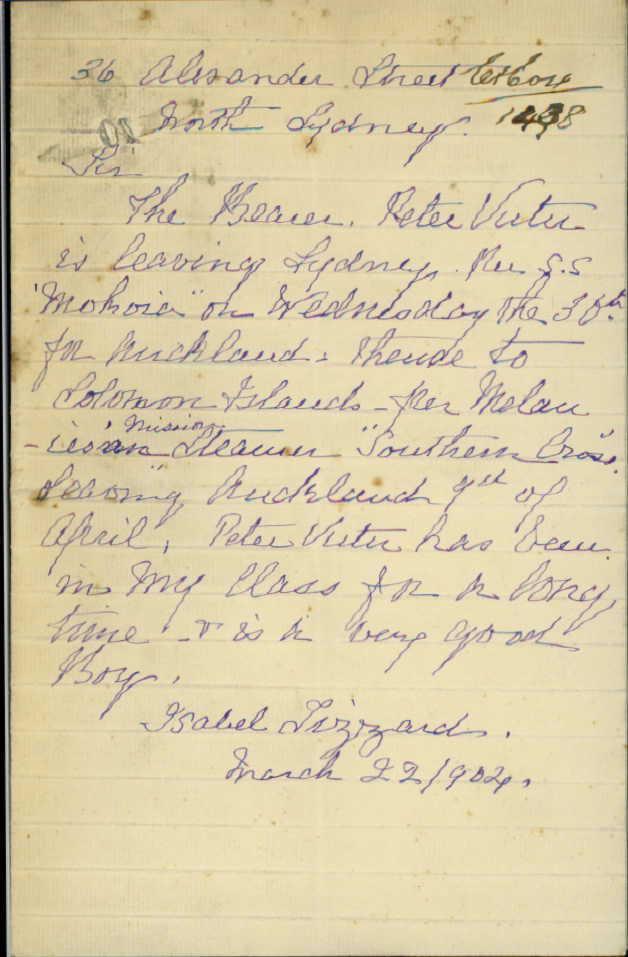 36 Alexander Street
North Sydney.
Sir
The Bearer. Peter Vutu
is leaving Sydney. Per S.S
"Mokoia" on Wednesday the 30th
for Auckland - thence to
Solomon Islands - per Melan
-esian Mission Steamer "Southern Cross".
Leaving Auckland 9th of
April. Peter Vutu has been
in my Class for a long
time - & is a very good
Boy.
Isabel Lizzard.
March 22/1904.